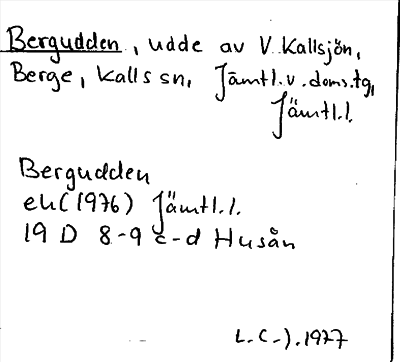 Bergudden, udde av V. Kallsjön,
Berge, Kalls sn, Jämtl.v.doms.tg,
Jämtl.l.
Bergudden
ek(1976) Jämtl.l.
19 D 8-9 c-d Husån
L.C-). 1977